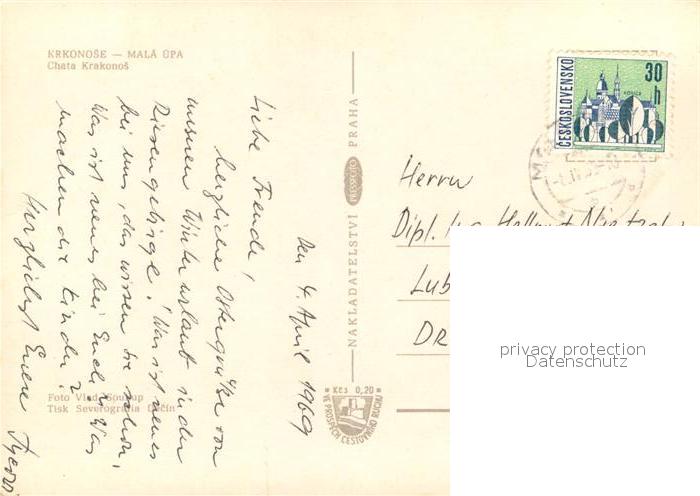 KRKONOŠE — MALÁ ÚPA
Chata Krakonoš
Den 4. April 1969
Liebe Freunde!
herzliche Ostergrüße von
unserem Winterurlaub in den
Riesengebirge! Was ist neues
bei uns, das wissen Sie schon,
Was ist neues bei Euch? Was
machen die Kinder?
Herzlichst Euere
Foto Vlad. Soukup
Tisk Severografia Děčín
NAKLADATELSTVÍ PRESSFOTO PRAHA
* Kčs 0,20 *
VE PROSPĚCH CESTOVNÍHO RUCHU
ČESKOSLOVENSKO
30 h
Herrn
Dipl. Ing. Hellmut
Lub
DR
privacy protection
Datenschutz